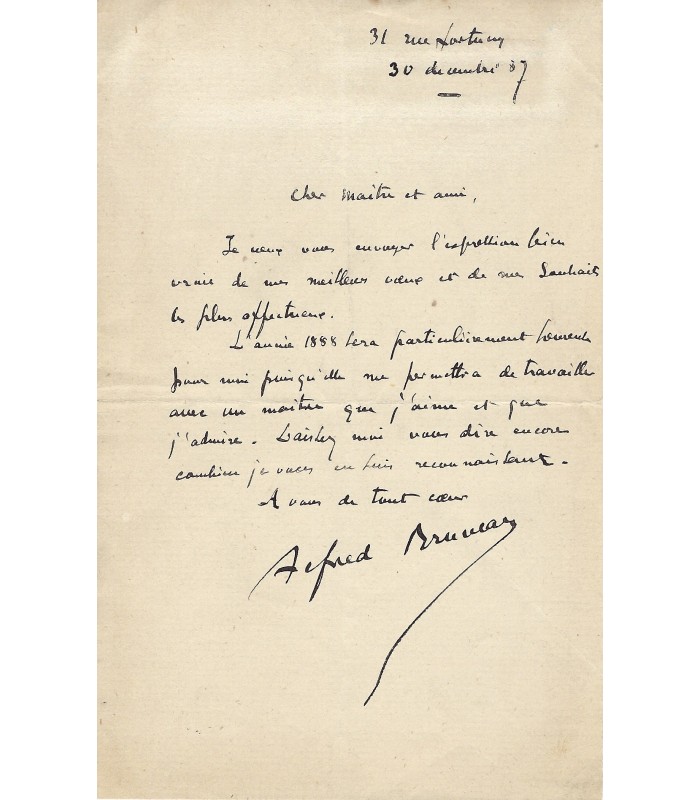 31 rue Fortuny
30 décembre 87
Cher Maître et ami,
Je veux vous envoyer l'expression bien
vraie de mes meilleurs vœux et de mes souhaits
les plus affectueux.
L'année 1888 sera particulièrement heureuse
pour moi puisqu'elle me permettra de travailler
avec un maître que j'aime et que
j'admire. Laissez moi vous dire encore
combien je vous en suis reconnaissant.
A vous de tout cœur
Alfred Bruneau